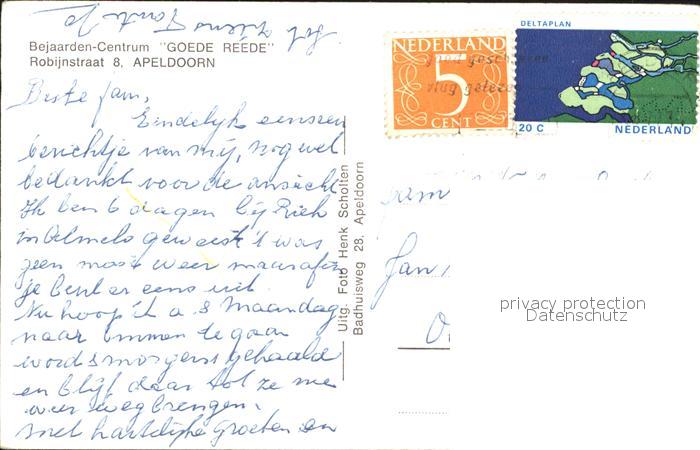 Tante Jo
Bejaarden-Centrum "GOEDE REEDE"
Robijnstraat 8, APELDOORN
Beste fam,
Eindelijk eens een
berichtje van mij, nog wel
bedankt voor de ansicht
Ik ben 6 dagen bij Riek
in Almelo geweest 't was
geen mooi weer maar afin
je bent er eens uit.
Nu hoop ik a s Maandag
naar Ommen te gaan
word smorgens gehaald
en blijf daar tot ze me
weer wegbrengen.
met hartelijke groeten en
Uitg. Foto Henk Scholten
Badhuisweg 28, Apeldoorn
NEDERLAND
5
CENT
DELTAPLAN
20 C
NEDERLAND
goed geschreven
vlug gelezen
fam
Jan
privacy protection
Datenschutz